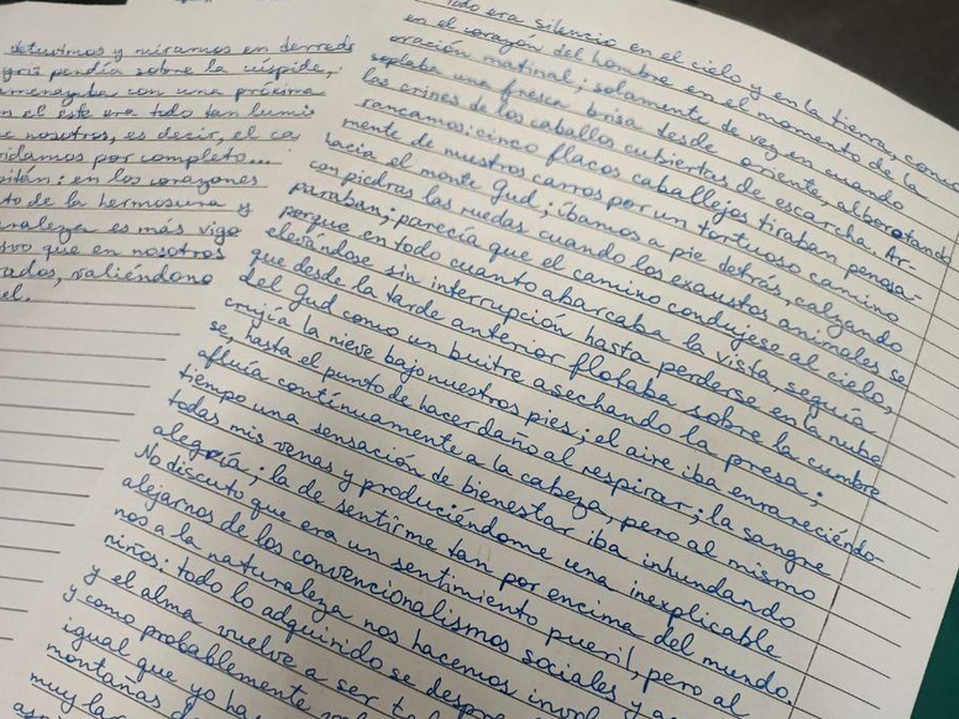 detuvimos y miramos en derredor
gris pendía sobre la cúspide,
amenazaba con una próxima
n el este era todo tan lumi
e nosotros, es decir, el ca
vidamos por completo...
pitán: en los corazones
to de la hermosura y
raleza es más vigo
sivo que en nosotros
rados, valiéndono
el.
Todo era silencio en el cielo y en la tierra, como
en el corazón del hombre en el momento de la
oración matinal; solamente de vez en cuando
soplaba una fresca brisa desde oriente, alborotando
las crines de los caballos cubiertas de escarcha. Ar-
rancamos: cinco flacos caballejos tiraban penosa-
mente de nuestros carros por un tortuoso camino
hacia el monte Gud; íbamos a pie detrás, calzando
con piedras las ruedas cuando los exaustos animales se
paraban; parecía que el camino condujese al cielo,
porque en todo cuanto abarcaba la vista, seguía
elevándose sin interrupción hasta perderse en la nube
que desde la tarde anterior flotaba sobre la cumbre
del Gud como un buitre asechando la presa;
crujía la nieve bajo nuestros pies; el aire iba enrareciéndo-
se, hasta el punto de hacer daño al respirar; la sangre
afluía contínuamente a la cabeza, pero al mismo
tiempo una sensación de bienestar iba inhundando
todas mis venas y produciéndome una inexplicable
alegría; la de sentirme tan por encima del mundo.
No discuto que era un sentimiento pueril, pero al
alejarnos de los convencionalismos sociales y
nos a la naturaleza nos hacemos
niños: todo lo adquirido se
y el alma vuelve a ser
y como probablemente
igual que yo
montañas
muy